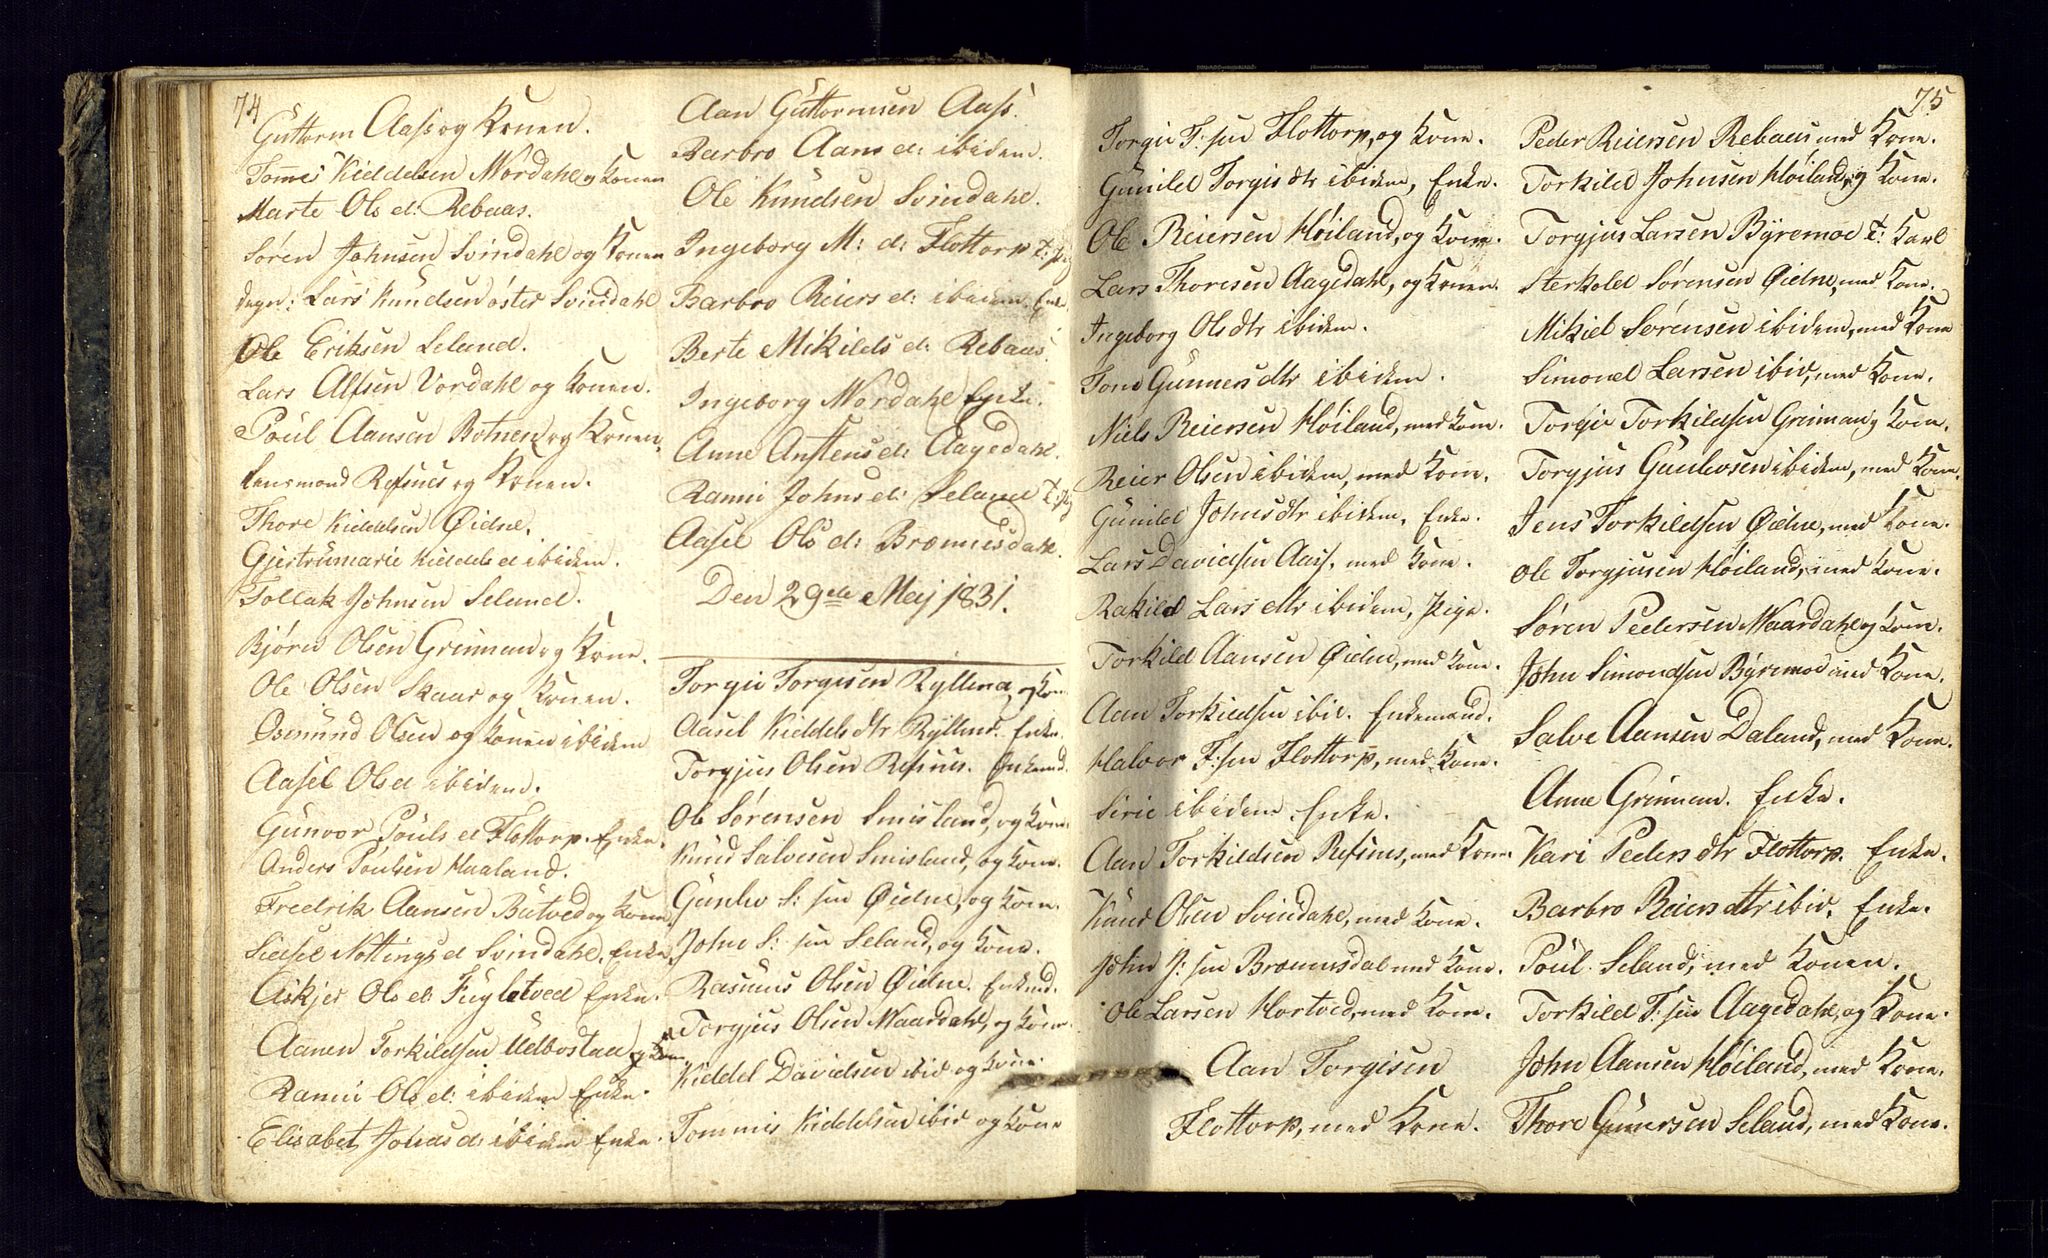 74
Guttorm Aass og Konen.
Tomes Kieddelsen Wordahl og Konen
Marte Ols d: Rebaas.
Søren Johnsen Svindahl og Konen
Lars Knudsen öster Svindahl
Ole Eriksen Seland.
Lars Alfsen Vordahl og Konen.
Poul Aansen Botnen og Konen.
Lensmand Refsnes og Konen.
Thore Kieddelsen Øidne.
Gjertrumarie Kieddels d ibidem.
Tollak Johnsen Seland.
Bjørn Olsen Grinman og Kone.
Ole Olsen Skaar og Konen.
Osmund Olsen og Konen ibidem
Aasel Ols d ibidem.
Gunvor Pouls d Flottorp. Enke.
Anders Poulsen Haaland.
Fredrik Aansen Butved og Kone
Sidsel Nottings d Svindahl. Enke.
Askjer Ols d: Fugletved Enke.
Aanen Torkildsen Udbostad og Kone
Ranni Ols d: ibidem Enke.
Elisabet Johns d: ibidem Enke.
Aan Guttormsen Aass.
Barbro Aans d: ibidem.
Ole Knudsen Svindahl.
Ingeborg M: d: Flottorp T:
Barbro Reiers d: ibidem. Enk.
Berte Mikilds d: Rebaas.
Ingeborg Wordahl Enke.
Anne Anstens d: Aagedahl.
Ranni Johns d: Seland T:
Aasel Ols d: Brommesdahl.
Den 29de Maij 1831.
Torgie Torgiesen Ryllend, og Kone
Aasel Kieddels dtr Ryllend. Enke.
Torgjus Olsen Refsnes. Enkemd.
Ole Sørensen Smisland, og Kone.
Knud Salvesen Smisland, og Kone.
Gunlev S: sen Øidne, og Kone.
John S: sen Seland, og Kone.
Rasmus Olsen Øidne. Enkmd.
Torgjus Olsen Waardahl, og Kone.
Kieddel Davidsen ibid og Kone.
Tommis Kieddelsen ibid og Kone
75
Torgie T: sen Flottorp, og Kone.
Gunild Torgis dtr ibidem, Enke.
Ole Reiersen Høiland, og Kone.
Lars Thoresen Aagedahl, og Konen.
Ingeborg Olsdtr ibidem.
Tone Gunners dtr ibidem.
Niels Reiersen Høiland, med Kone.
Reier Olsen ibidem, med Kone.
Gunild Johns dtr ibidem. Enke.
Lars Davidsen Aass. med Kone.
Rakild Lars dtr ibidem, Pige.
Torkild Aansen Øidne, med Kone.
Aan Torkildsen ibid. Enkemand.
Halvor T: sen Flottorp, med Kone.
Sirie ibidem. Enke.
Aan Torkildsen Refsnes, med Kone
Knud Olsen Svindahl, med Kone.
John J: sen Brommesdal med Kone.
Ole Larsen Hortved, med Kone.
Aan Torgisen
Flottorp, med Kone.
Peder Reiersen Rebaas med Kone.
Torkild Johnsen Høiland, og Kone.
Torgjus Larsen Byremoe T: Karl
Sterkold Sørensen Øidne, med Kone.
Mikiel Sørensen ibidem, med Kone
Simonel Larsen ibid, med Kone.
Torgie Torkildsen Grinman, og Kone.
Torgjus Gunlevsen ibidem, med Kone.
Jens Torkildsen Øidne, med Kone.
Ole Torgjusen Høiland, med Kone.
Søren Pedersen Waardahl, og Kone.
John Simondsen Byremoe med Kone.
Salve Aansen Daland, med Kone.
Anne Grinman. Enke.
Kari Peders dtr Flottorp. Enke.
Barbro Reiers dtr ibid. Enke.
Poul Seland, med Konen.
Torkild T: sen Aagedahl, og Kone.
John Aansen Høiland, med Kone.
Thore Gunersen Seland, med Kone.